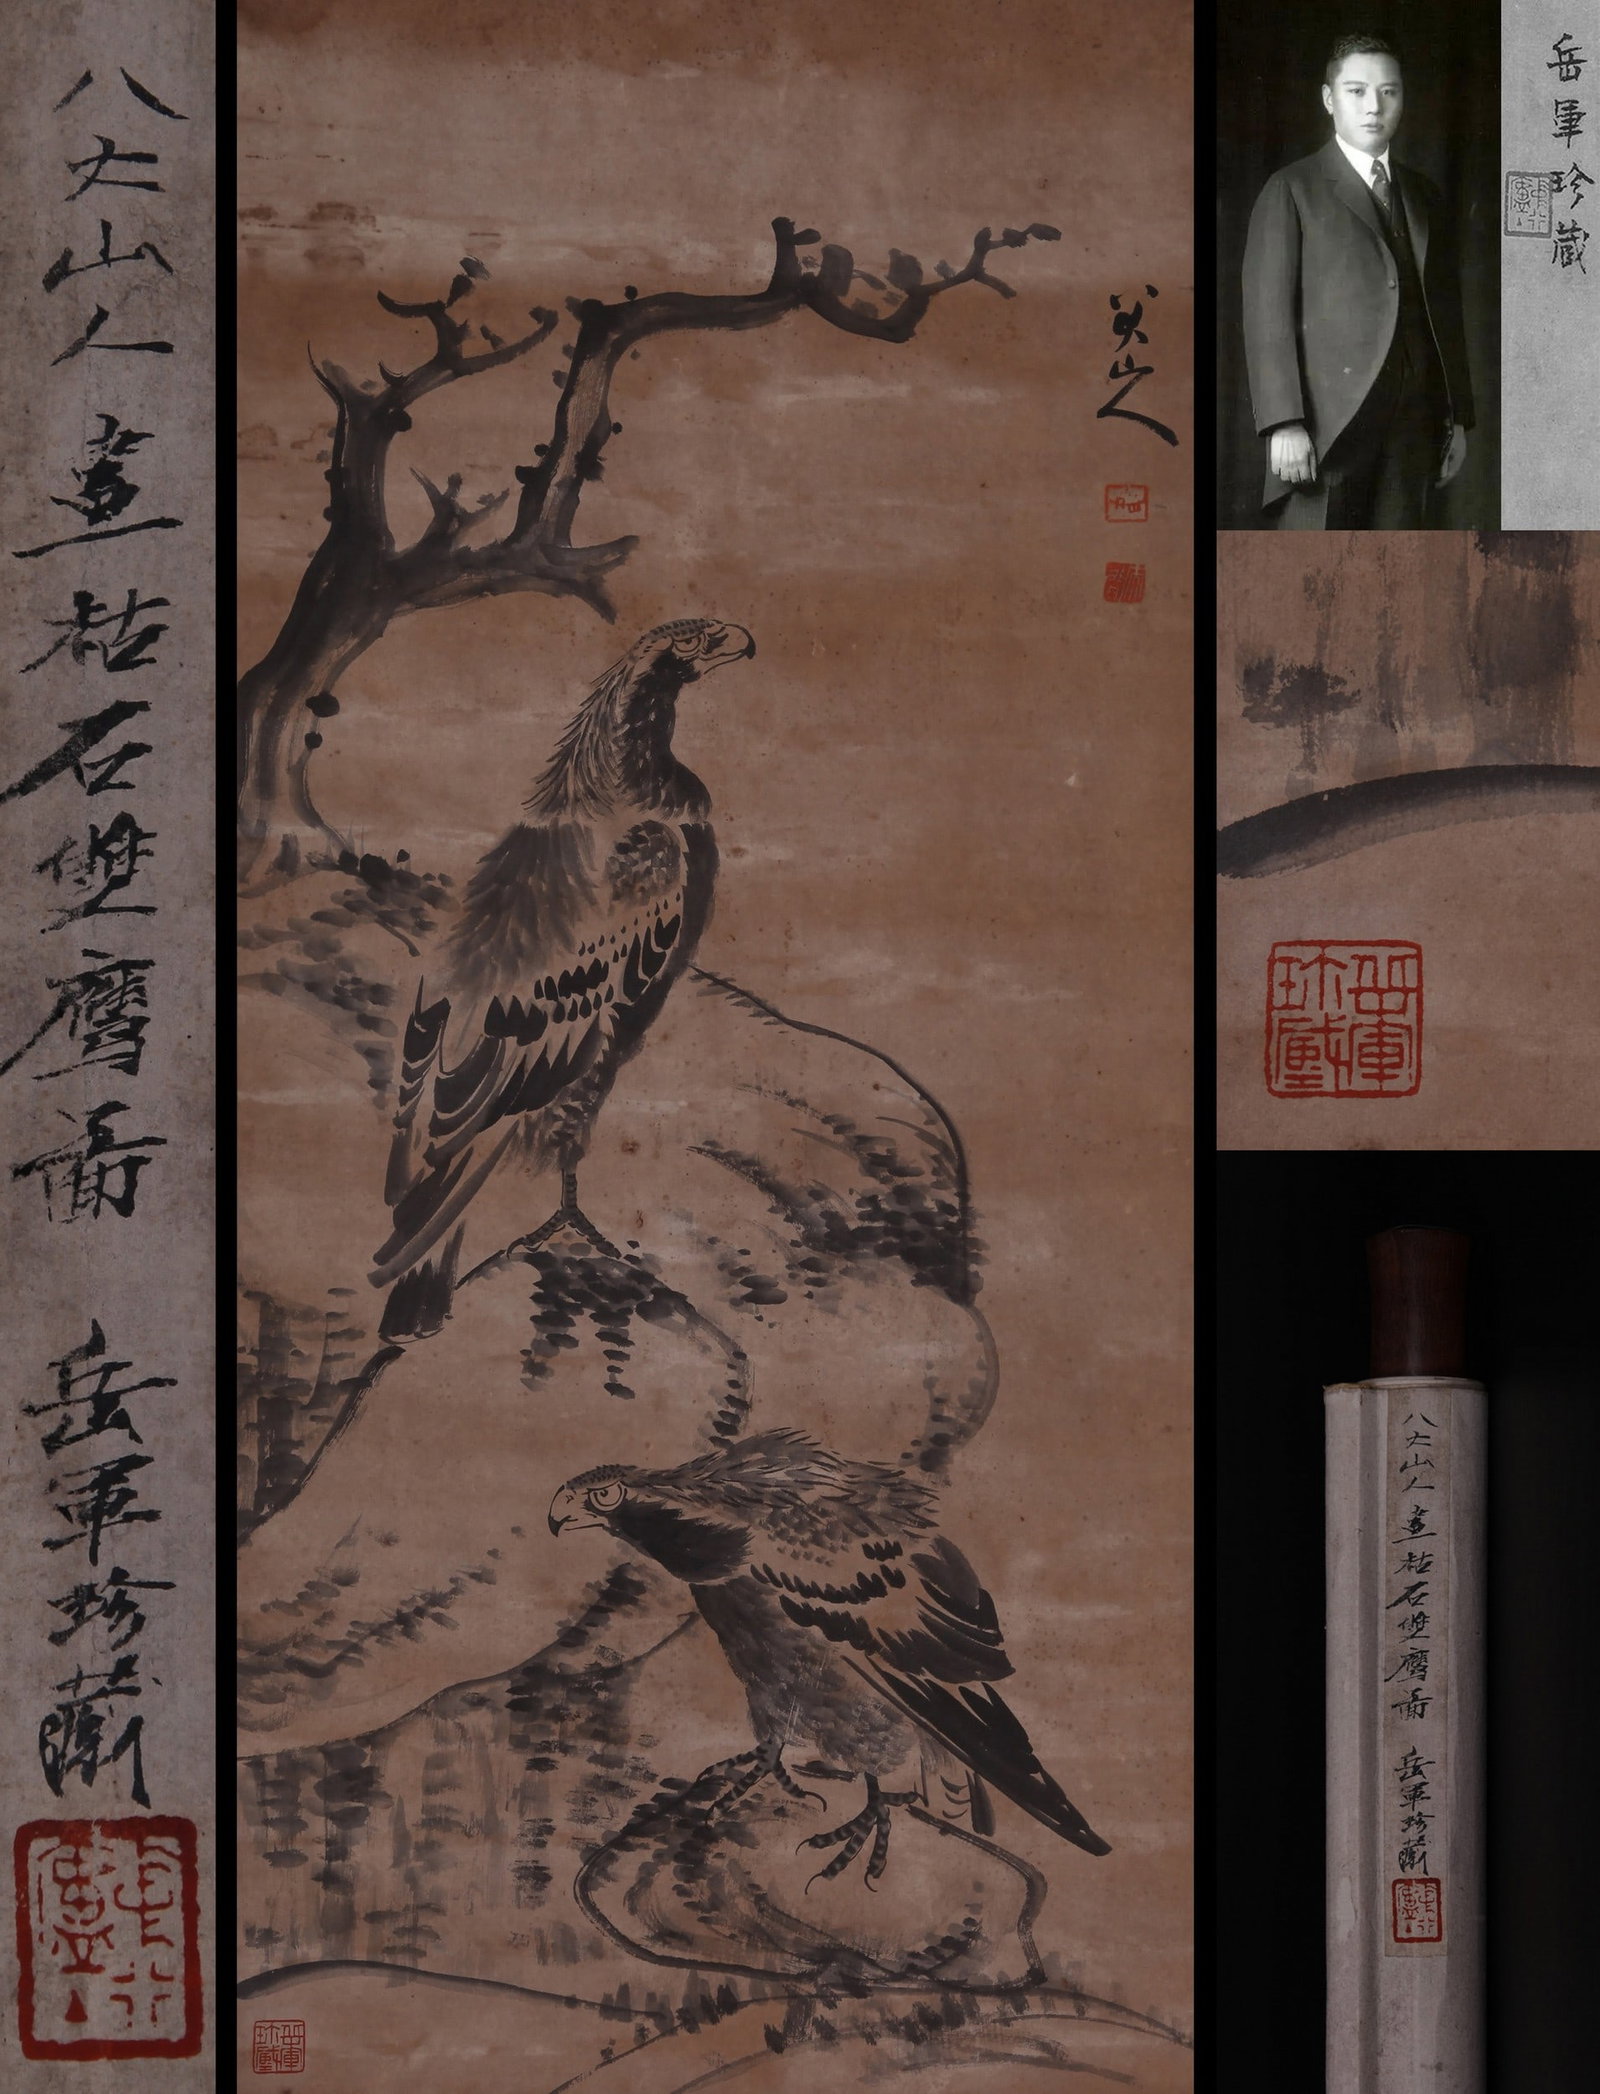 八大山人畫枯石雙鷹圖 岳軍珍藏
八大山人
岳軍珍藏
岳軍珍藏
岳軍珍藏
八大山人畫枯石雙鷹圖 岳軍珍藏